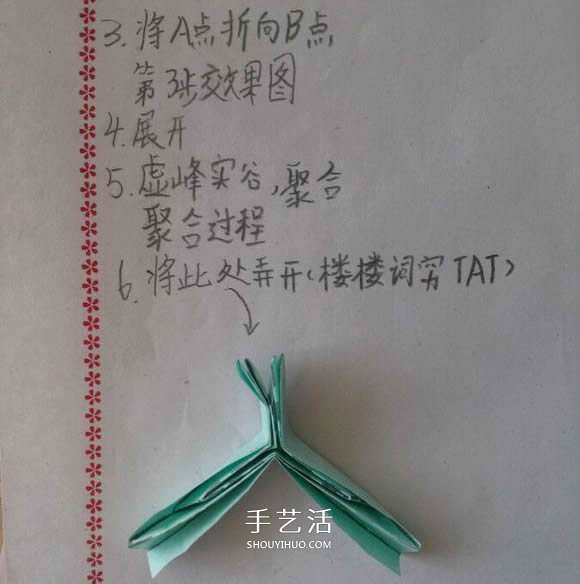 3. 将A点折向B点
第3步效果图
4. 展开
5. 虚峰实谷,聚合
聚合过程
6. 将此处弄开(楼楼词穷TAT)
手艺活
SHOUYIHUO.COM